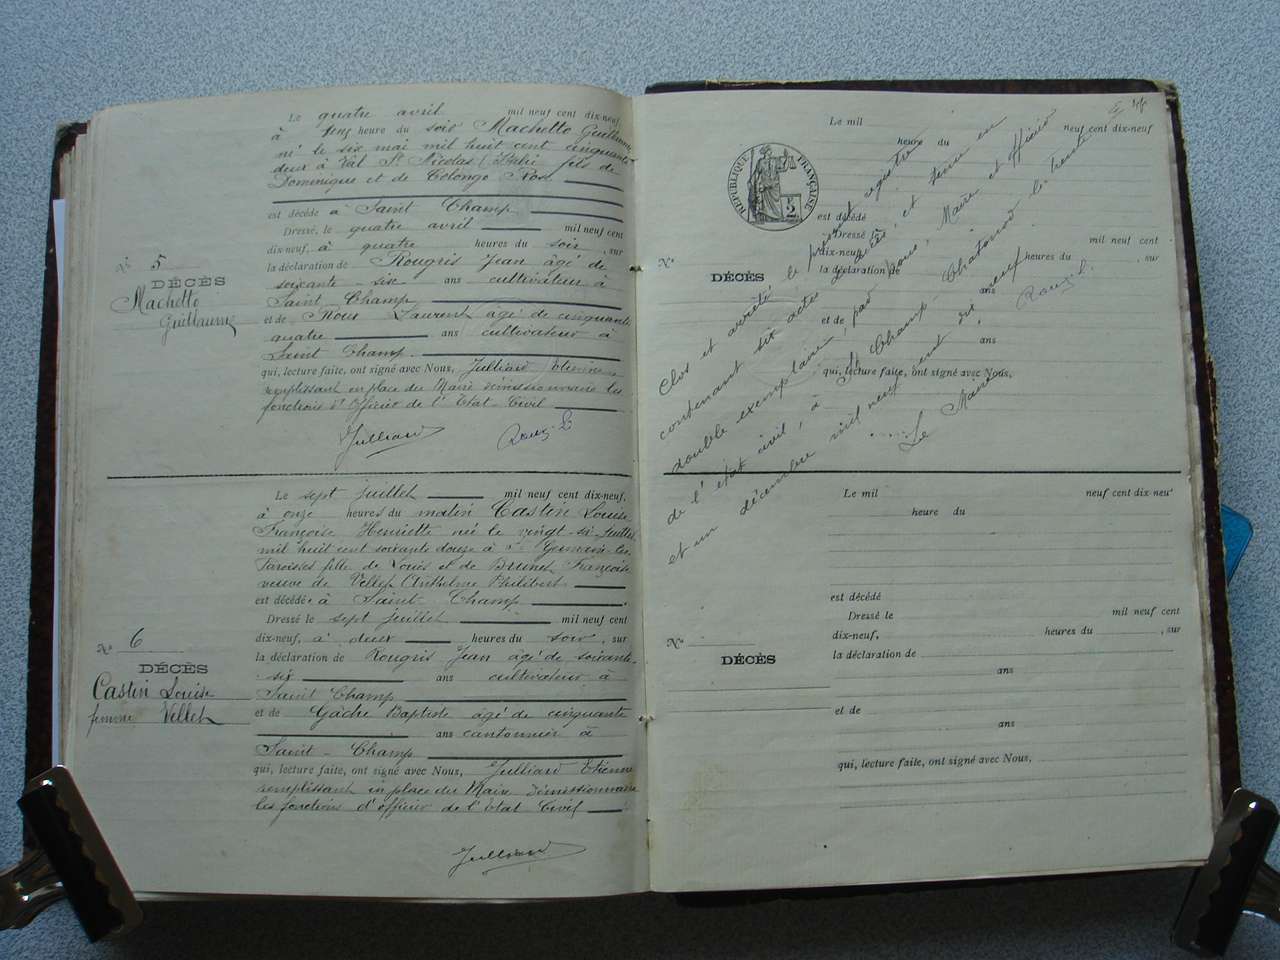 Le quatre avril mil neuf cent dix-neuf,
à heure du soir Machetto Guillaume
né le six mai mil huit cent cinquante
deux à Val St Nicolas (Italie) fils de
Dominique et de Colongo Rose
est décédé à Saint Champ
Dressé, le quatre avril mil neuf cent
dix-neuf, à quatre heures du soir, sur
la déclaration de Rougris Jean âgé de
soixante-six ans cultivateur à
Saint Champ
et de Roux Laurent âgé de cinquante
quatre ans cultivateur à
Saint Champ
qui, lecture faite, ont signé avec Nous, Julliard Etienne
remplissant en place du Maire démissionnaire les
fonctions d'Officier de l'Etat-Civil
Julliard Roux L
N° 5
DÉCÈS
Machetto
Guillaume
Le sept juillet mil neuf cent dix-neuf,
à onze heures du matin Castin Louise
Françoise Henriette née le vingt-six juillet
mil huit cent soixante douze à St Germain-les
Paroisses fille de Louis et de Brunet Françoise
veuve de Vellet Anthelme Philibert
est décédée à Saint-Champ
Dressé le sept juillet mil neuf cent
dix-neuf, à deux heures du soir, sur
la déclaration de Rougris Jean âgé de soixante-
six ans cultivateur à
Saint Champ
et de Gâche Baptiste âgé de cinquante
ans cantonnier à
Saint-Champ
qui, lecture faite, ont signé avec Nous, Julliard Etienne
remplissant en place du Maire démissionnaire
les fonctions d'officier de l'Etat Civil
Julliard
N° 6
DÉCÈS
Castin Louise
femme Vellet
Le mil neuf cent dix-neuf
heure du
RÉPUBLIQUE FRANÇAISE
est décédé
Dressé le mil neuf cent
dix-neuf, à heures du , sur
la déclaration de
ans
et de
ans
qui, lecture faite, ont signé avec Nous,
N°
DÉCÈS
Clos et arrêté le présent registre
contenant six actes de décès, et tenu en
double exemplaire, par nous, Maire et Officier
de l'état civil, à St Champ-Chatonod le trente
et un décembre mil neuf cent dix neuf
Le Maire
Roux L.
Le mil neuf cent dix-neuf
heure du
est décédé
Dressé le mil neuf cent
dix-neuf, heures du , sur
la déclaration de
ans
et de
ans
qui, lecture faite, ont signé avec Nous,
N°
DÉCÈS